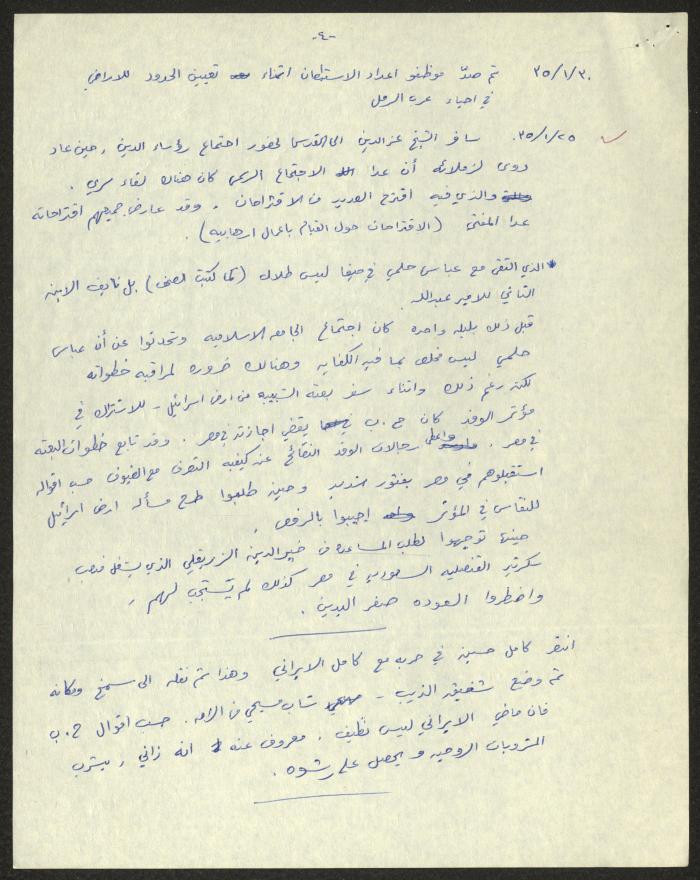 -٤-
٣٥/١/٣٠ تم صدّ موظفو اعداد الاستيطان اثناء تعيين الحدود للاراضي
في احياء عرب الرمل
٣٥/١/٢٥. سافر الشيخ عز الدين الى القدس لحضور اجتماع رؤساء الدين، حين عاد
روى لزملائه أن عدا الاجتماع الرسمي كان هناك لقاء سري.
والذي فيه اقترح العديد من الاقتراحات. وقد عارض جميعهم اقتراحاته
عدا المفتي (الاقتراحات حول القيام باعمال ارهابيه).
* الذي التقى مع عباس حلمي في حيفا ليس طلال (كما كتبت الصحف) بل نايف الابن
الثاني للامير عبدالله
قبل ذلك بليله واحده كان اجتماع الجامعه الاسلاميه وتحدثوا عن أن عباس
حلمي ليس مخلص بما فيه الكفايه وهنالك ضروره لمراقبه خطواته
لكن رغم ذلك واثناء سفر بعثة الشبيبه من ارض اسرائيل - للاشتراك في
مؤتمر الوفد كان ح.ب يقضي اجازته في مصر. وقد تابع خطوات البعثه
في مصر. واعطى رجالات الوفد النصائح عن كيفيه التصرف مع الضيوف حسب اقواله
استقبلوهم في مصر بفتور شديد وحين طلبوا طرح مسأله ارض اسرائيل
للنقاش في المؤتمر اجيبوا بالرفض.
حينها توجهوا لطلب المساعده من خير الدين الزريقلي الذي يشغل منصب
سكرتير القنصليه السعوديه في مصر كذلك لم يستجب لهم،
واضطروا العوده صفر اليدين.
انتصر كامل حسين في حربه مع كامل الايراني وهذا تم نقله الى سمخ ومكانه
تم وضع شفيق الذيب - شاب مسيحي من الرامه. حسب اقوال ح.ب
فان ماضي الايراني ليس نظيف، معروف عنه انه زاني، يشرب
المشروبات الروحيه ويحصل على رشوه.